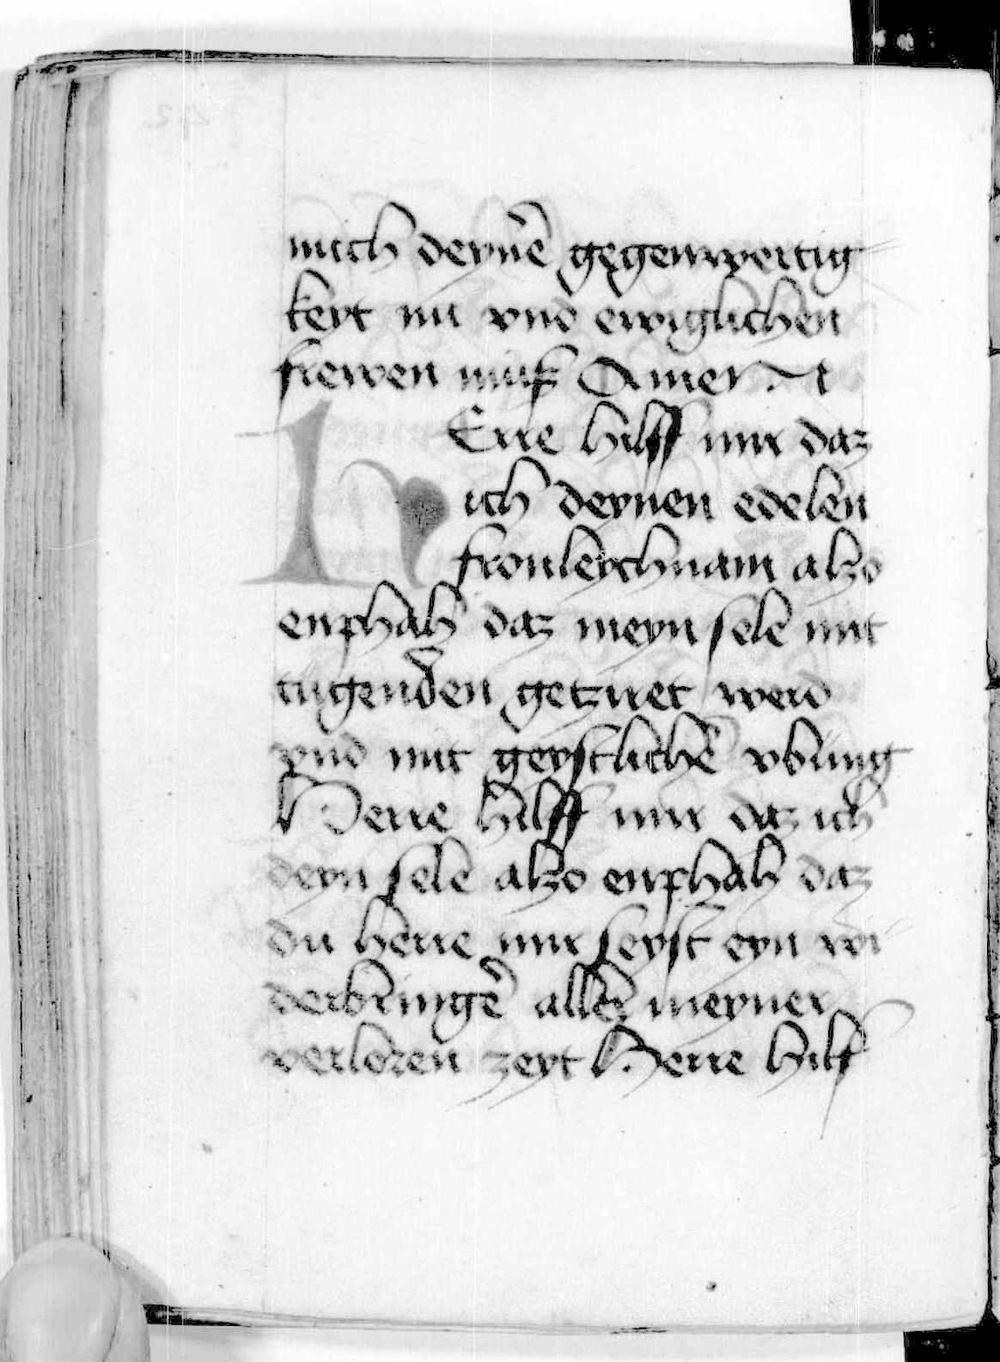 mich deynē gegenwertig
keyt nu vnd ewiglichen
frewen muß Amen
HErre hilff mir daz
ich deynen edelen
fronleychnam alzo
enphah daz meyn sele mit
tugenden getziret werd
vnd mit geystlichē vbung
Herre hilff mir daz ich
deyn sele alzo enphah daz
du herre mir seyst eyn wi
derbringer aller meyner
verloren zeyt Herre hilf